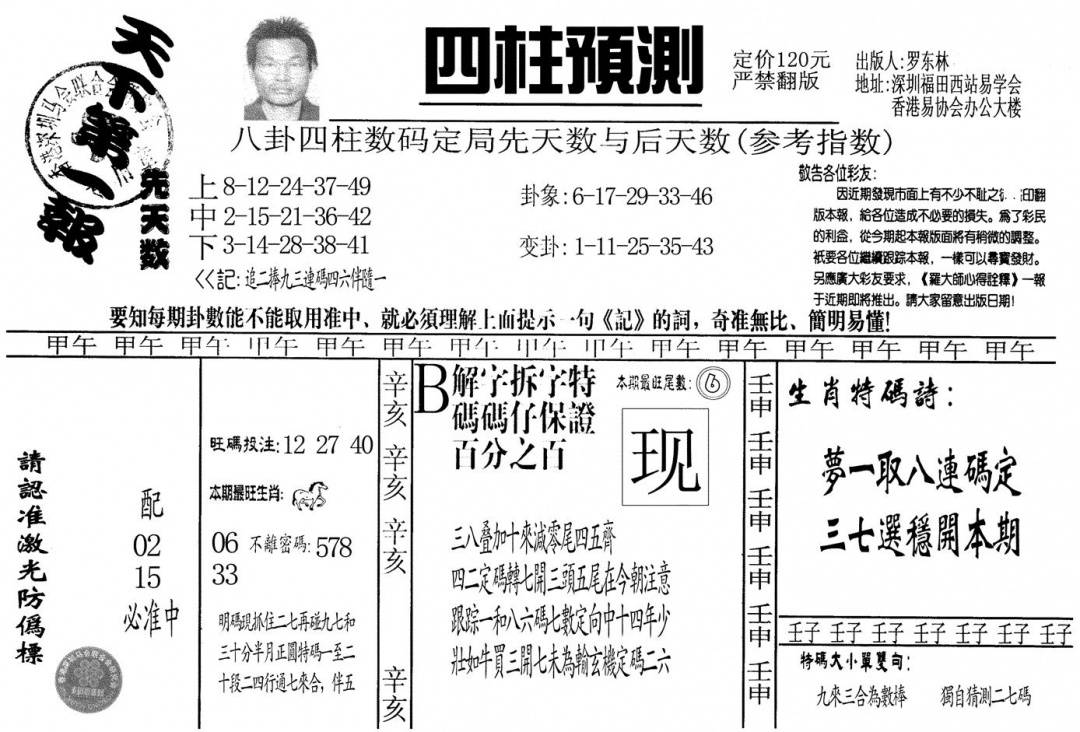 天下第一報
先天数
四柱預測
定价120元
严禁翻版
出版人:罗东林
地址:深圳福田西站易学会
香港易协会办公大楼
八卦四柱数码定局先天数与后天数(参考指数)
上8-12-24-37-49
中2-15-21-36-42
下3-14-28-38-41
<<記:追二捧九三連碼四六伴隨一
卦象:6-17-29-33-46
变卦:1-11-25-35-43
敬告各位彩友:
因近期發現市面上有不少不耻之 印翻
版本報,給各位造成不必要的損失。爲了彩民
的利益,從今期起本報版面將有稍微的調整。
衹要各位繼續跟踪本報,一樣可以尋寶發財。
另應廣大彩友要求,《羅大師心得詮釋》一報
于近期即將推出。請大家留意出版日期!
要知每期卦數能不能取用准中、就必須理解上面提示一句《記》的詞,奇准無比、簡明易懂!
甲午 甲午 甲午 甲午 甲午 甲午 甲午 甲午 甲午 甲午 甲午 甲午 甲午 甲午 甲午
請認准激光防僞標
配
02
15
必准中
旺碼投注:12 27 40
本期最旺生肖:
06 不離密碼:578
33
明碼現抓住二七再碰九七和
三十分半月正圓特碼一至二
十段二四行過七來合,伴五
辛亥
辛亥
辛亥
辛亥
B解字拆字特
碼碼仔保證
百分之百
本期最旺尾數:6
现
三八叠加十來減零尾四五齊
四二定碼轉七開三頭五尾在今朝注意
跟踪一和八六碼七數定向中十四年少
壯如牛買三開七未為輸玄機定碼二六
壬申
壬申
壬申
壬申
壬申
壬申
生肖特碼詩:
夢一取八連碼定
三七選穩開本期
壬子 壬子 壬子 壬子 壬子 壬子 壬子
特碼大小單雙句:
九來三合為數棒 獨自猜測二七碼